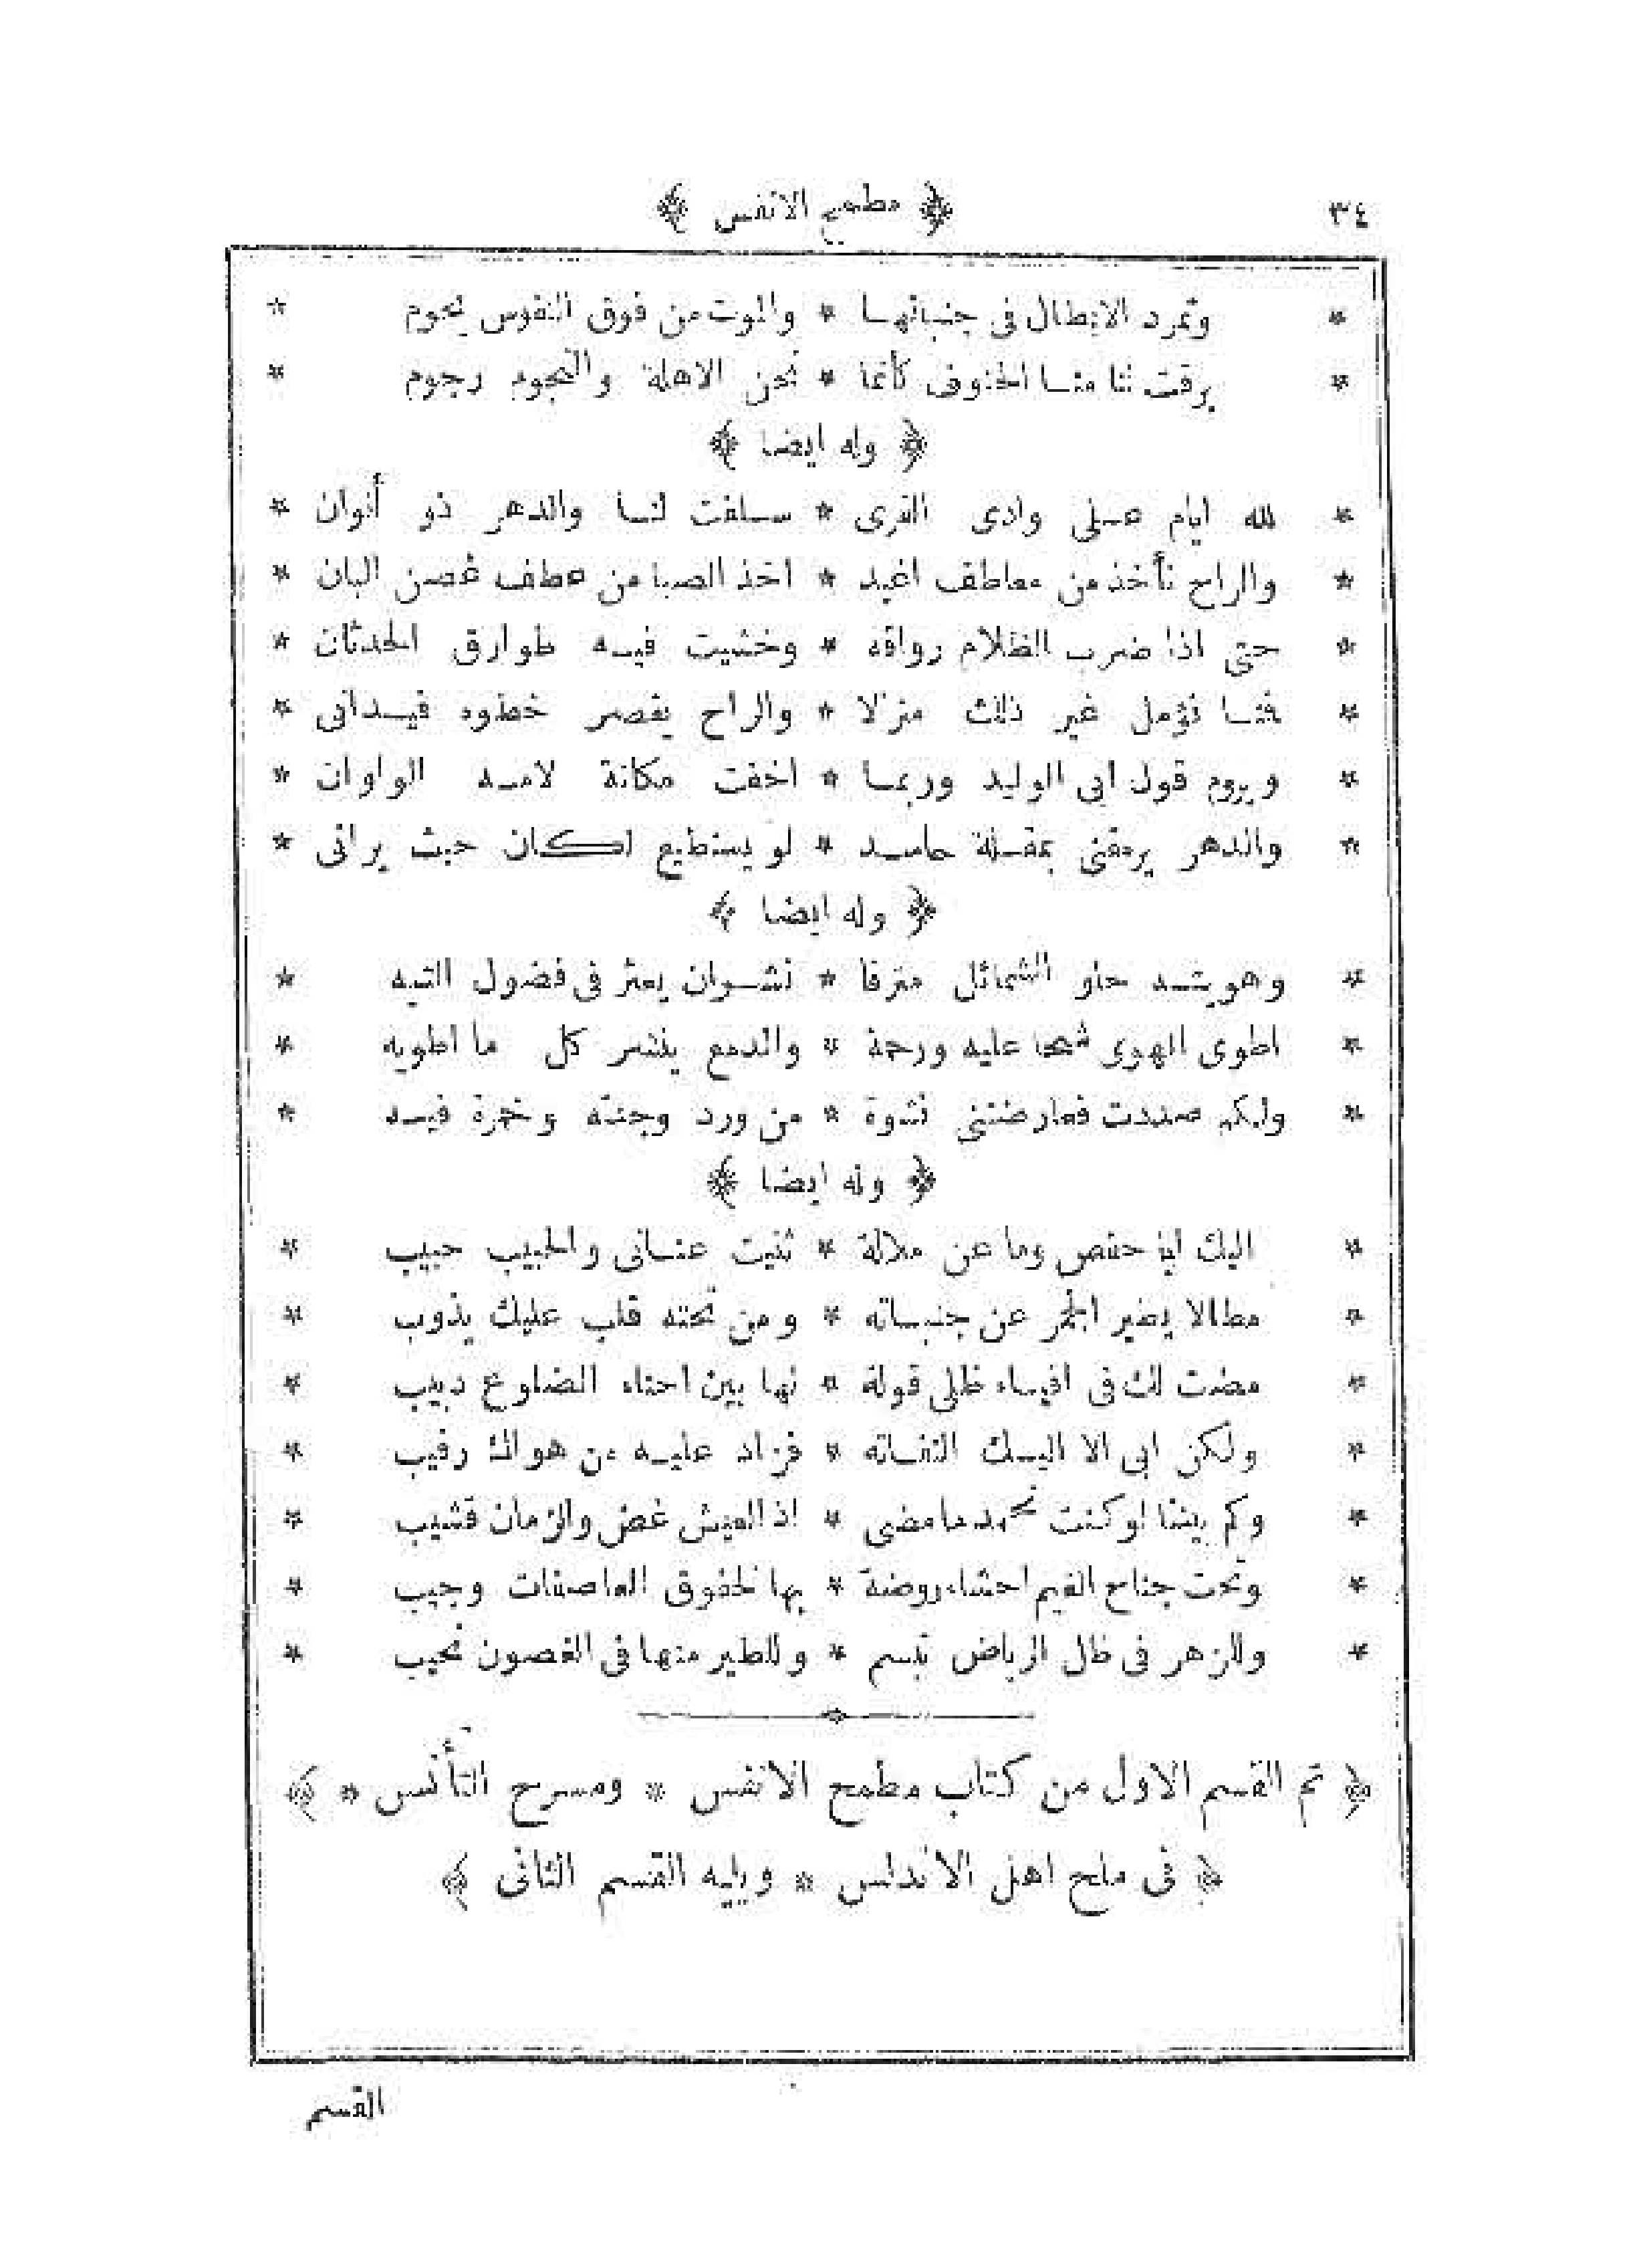 ٣٤ ﴿ مطمح الانفس ﴾
* وتمرد الابطال فى جنباتهـا * والموت من فوق النفوس يحوم *
* برقت لنا منـا الحتوف كأنما * نحن الاهلة والنجوم رجوم *
﴿ وله ايضا ﴾
* لله ايام عـلى وادى القرى * سـلفت لنـا والدهر ذو ألوان *
* والراح تأخذ من معاطف اغيد * اخذ الصبا من عطف غصن البان *
* حتى اذا ضرب الظلام رواقه * وخشيت فيـه طوارق الحدثان *
* فتنـا نؤمل غير ذلك منزلا * والراح يقصر خطوه فيـدانى *
* ويروم قول ابى الوليد وربمـا * اخفت مكانة لامـه الواوان *
* والدهر يرمقنى بمقـلة حاسـد * لو يستطيع لكان حيث يرانى *
﴿ وله ايضا ﴾
* وهويتـه حلو الشمائل مترفا * نشـوان يعثر فى فضول التيه *
* اطوى الهوى شحا عليه ورحمة * والدمع ينشر كل ما اطويه *
* ولكم صددت فعارضتنى نشوة * من ورد وجنته وخمرة فيـه *
﴿ وله ايضا ﴾
* اليك ابا حفص وما عن ملالة * ثنيت عنـانى والحبيب حبيب *
* مطالا يطير الجمر عن جنبـاته * ومن تحته قلب عليك يذوب *
* مضت لك فى افيـاء ظلى قولة * لها بين احناء الضلوع دبيب *
* ولكن ابى الا اليـك التفـاته * فزاد عليـه من هواك رقيب *
* وكم بيننا لو كنت تحمد ما مضى * اذ العيش غض والزمان قشيب *
* وتحت جناح الغيم احشاء روضة * بها لخفوق العاصفات وجيب *
* وللزهر فى ظل الرياض تبسم * وللطير منها فى الغصون نحيب *
﴿ تم القسم الاول من كتاب مطمح الانفس * ومسرح التأنس * ﴾
﴿ فى ملح اهل الاندلس * ويليه القسم الثانى ﴾
القسم